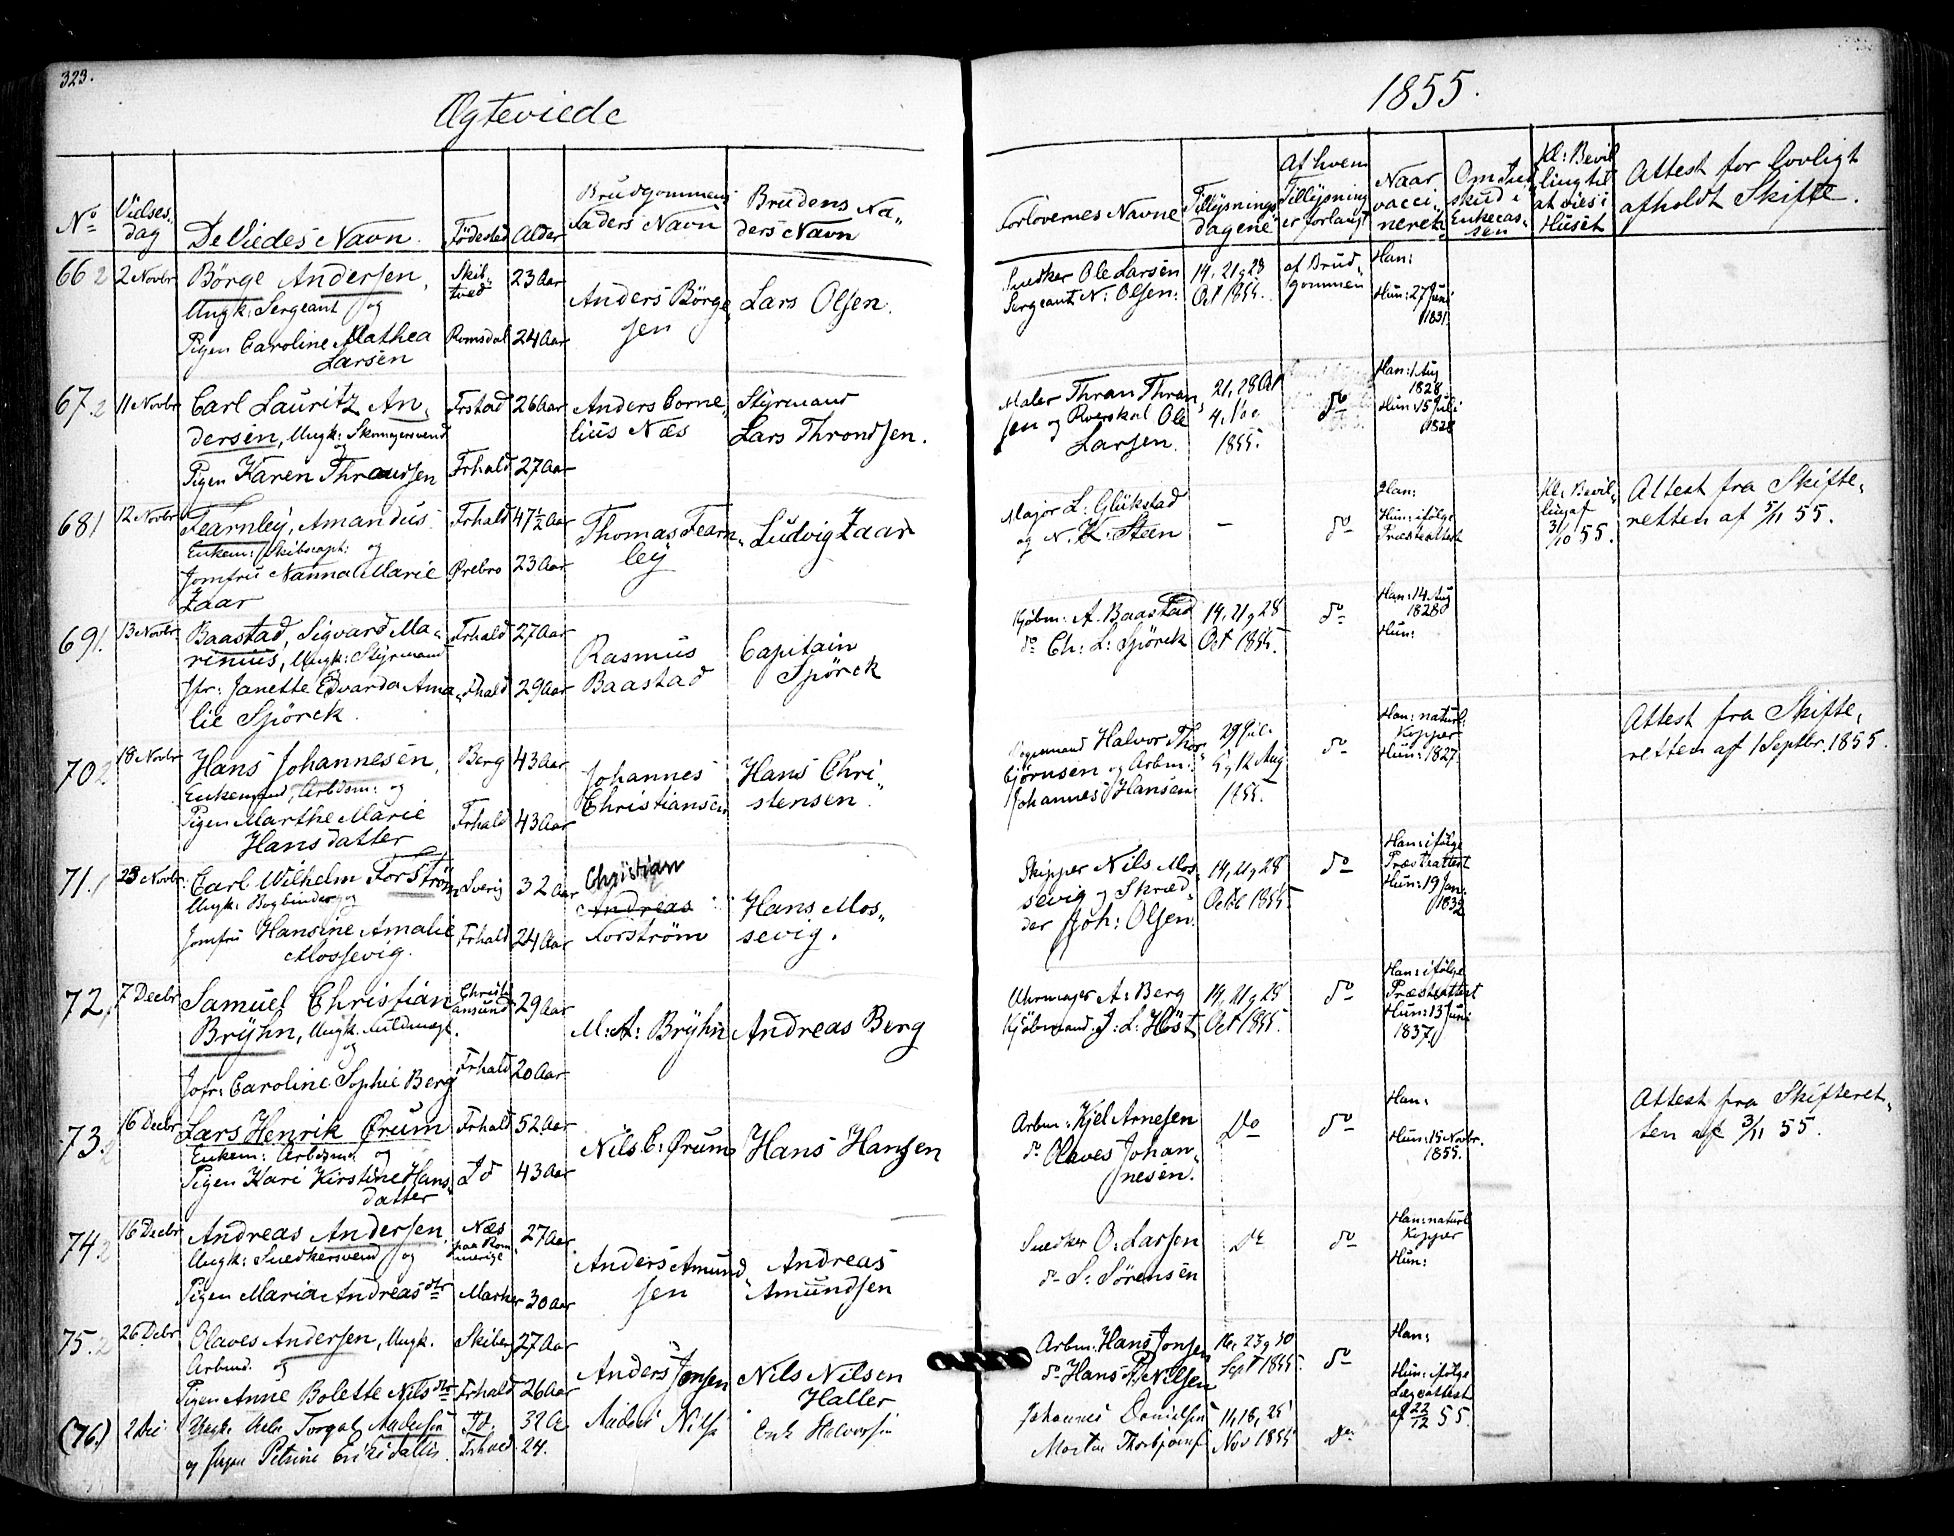 323.
Ægteviede
1855.
No
Vielses-
dag
De Viedes Navn.
Fødested
Alder
Brudgommens
Faders Navn
Brudens Fa-
ders Navn
Forlovernes Navne
Tillysnings
dagene
Af hvem
Tillysning
er forlangt
Naar
vacci-
neret
Om Ind-
skud i
Enkecas-
sen
Kl: Bevil
ling til
at vies i
Huset
Attest for lovligt
afholdt Skifte.
66 2
2 Novbr
Börge Andersen,
Ungk: Sergeant og
Pigen Caroline Mathea
Larsen
Skib-
tved
Romsdal
23 Aar
24 Aar
Anders Börge
sen
Lars Olsen.
Snedker Ole Larsen
Sergeant N: Olsen:
14, 21 og 28
Oct 1855.
af Brud-
gommen
Han:
Hun: 27 Juni
1831.
67. 2
11 Novbr
Carl Lauritz An-
dersen, Ungk: Skomagersvend
og
Pigen Karen Throndsen
Frstad
Frhald
26 Aar
27 Aar
Anders Corne-
lius Næs
Styrmand
Lars Throndsen.
Maler Thran Thran
sen og Ole
Larsen.
21, 28 Oct
4,
1855.
do
Han: 1 Aug
1828
Hun: 15 Juli
1828
68 1
12 Novbr
Fearnley, Amandus
Enkem: Skibscapt: og
Jomfru Nanna Marie
Zaar
Frhald
Örebro
47½ Aar
23 Aar
Thomas Fearn-
ley
Ludvig Zaar
Major L: Glükstad
og N. K: Steen
–
do
Han:
Hun: ifölge
Præsteattest
Kl: Bevil-
ling af
31/10 55.
Attest fra Skifte-
retten af 5/11 55.
69 1.
13 Novbr
Baastad, Sigvard Ma-
rinius, Ungk: Styrmand
og
Jfr: Janette Edvarda Ama-
lie Spörck.
Frhald
Fhald
27 Aar
29 Aar
Rasmus
Baastad
Capitain
Spörck
Kjøbm: A. Baastad
do Ch: L: Spörck
14, 21 og 28
Oct 1855.
do
Han: 14 Aug
1828
Hun:
70 2
18 Novbr
Hans Johannesen,
Enkemand, Arbdsm: og
Pigen Marthe Marie
Hansdatter
Berg
Frhald
43 Aar
43 Aar
Johannes
Christiansen
Hans Chri-
stensen.
Halvor Thor-
björnsen og Arbm:
Johannes Hansen
29 Juli
5 og 12 Aug
1855.
do
Han: naturl:
Kopper
Hun: 1827.
Attest fra Skifte-
retten af 1 Septbr. 1855.
71. 1
23 Novbr.
Carl Wilhelm Forström
Ungk: Bogbinder og
Jomfru Hansine Amalie
Mossevig.
Sverig
Frhald
32 Aar
24 Aar
Christian
Andreas
Forström
Hans Mos-
sevig.
Skipper Nils Mos-
sevig og Skræd-
der Joh: Olsen.
14, 21 og 28
Octb 1855.
do
Han: ifölge
Præsteattest
Hun: 19 Jan:
1832
72, 1
7 Decbr
Samuel Christian
Bryhn, Ungk. Fuldmægt.
og
Jofr: Caroline Sophie Berg
Christi-
ansund
Frhald
29 Aar
20 Aar
M: A: Bryhn
Andreas Berg
Uhrmager A: Berg
Kjøbmand. J: L: Höst
14, 21 og 28
Oct 1855.
do
Han: ifölge
Præsteattest
Hun: 13 Juni
1837.
73. 2
16 Decbr
Lars Henrik Ørum
Enkem: Arbdsmd. og
Pigen Kari Kirstine Hans-
datter
Frhald
Id
52 Aar
43 Aar
Nils C: Ørum
Hans Hansen
Arbm: Kjel Arnesen
do Olaves Johan-
nesen.
Do
do
Han:
Hun: 15 Novbr.
1855.
Attest fra Skifteret-
ten af 3/11 55.
74. 2
16 Decbr
Andreas Andersen,
Ungk: Snedkersvend og
Pigen Maria Andreasdtr
Næs
paa Rom-
merige
Marker
27 Aar
30 Aar
Anders Amund-
sen
Andreas
Amundsen
Snedker O: Larsen
do S: Sörensen
Do
do
Han: naturl
Kopper
Hun:
75. 2
26 Debr
Olaves Andersen, Ungk.
Arbmd. og
Pigen Anne Bolette Nilsdtr
Skiberg
Frhald
27 Aar
26 Aar
Anders Jonsen
Nils Nilsen
Haller
Arbm. Hans Jonsen
do Hans P: Nilsen
16, 23 og 30
Sept 1855.
do
Han:
Hun: ifölge
Lægeattest
af 22/12 55.
(76.)
2 Dec
Ungk. Torgal Andersen
og Pigen Petrine Eriksdatter.
Id.
Frhald.
32 A
24.
Anders Nils
Erik Halvorsen
Johannes Danielsen
Morten Thorbjörns
11, 18, 25
Nov 1855
do